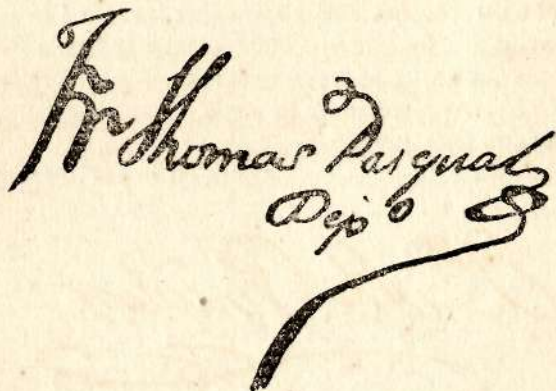 Fr Thomas Pasqual
Depo